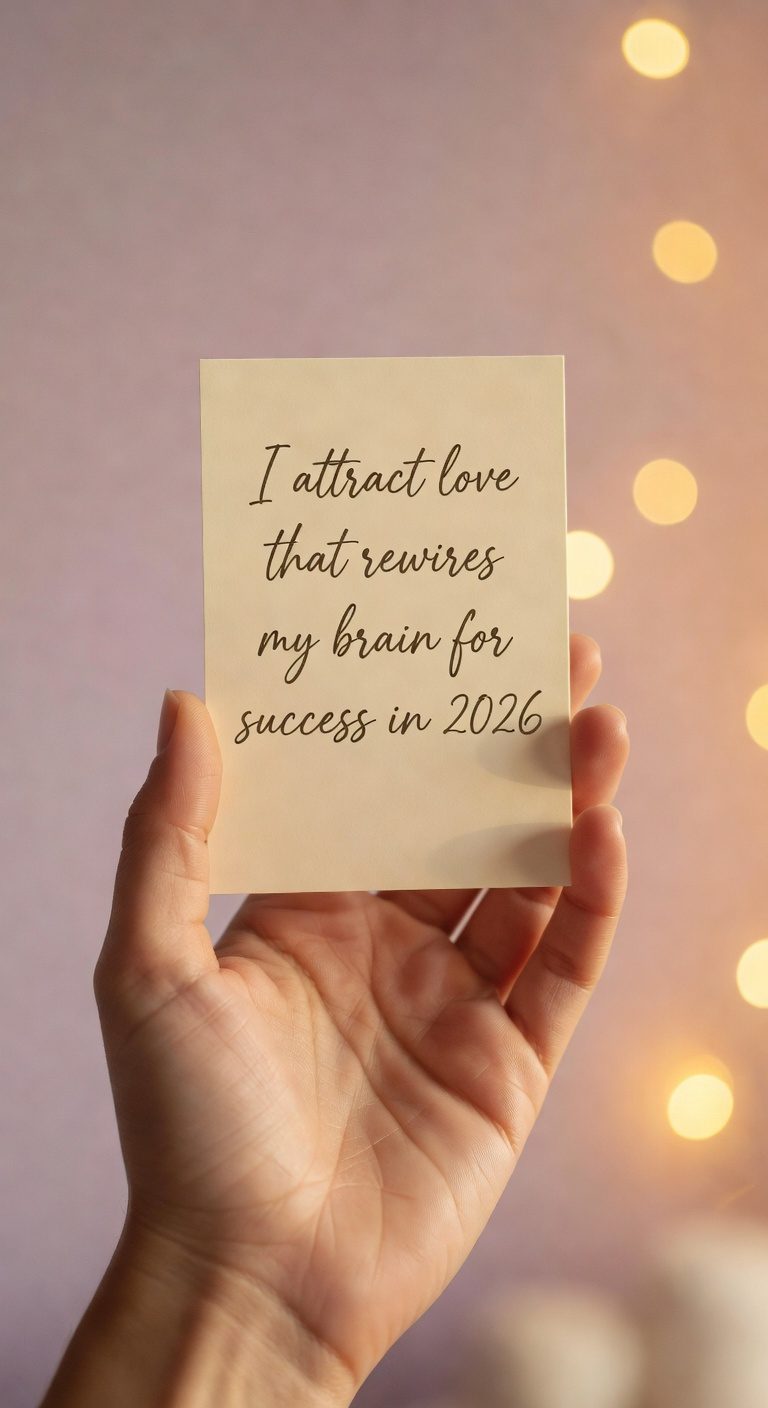 I attract love
that rewires
my brain for
success in 2026